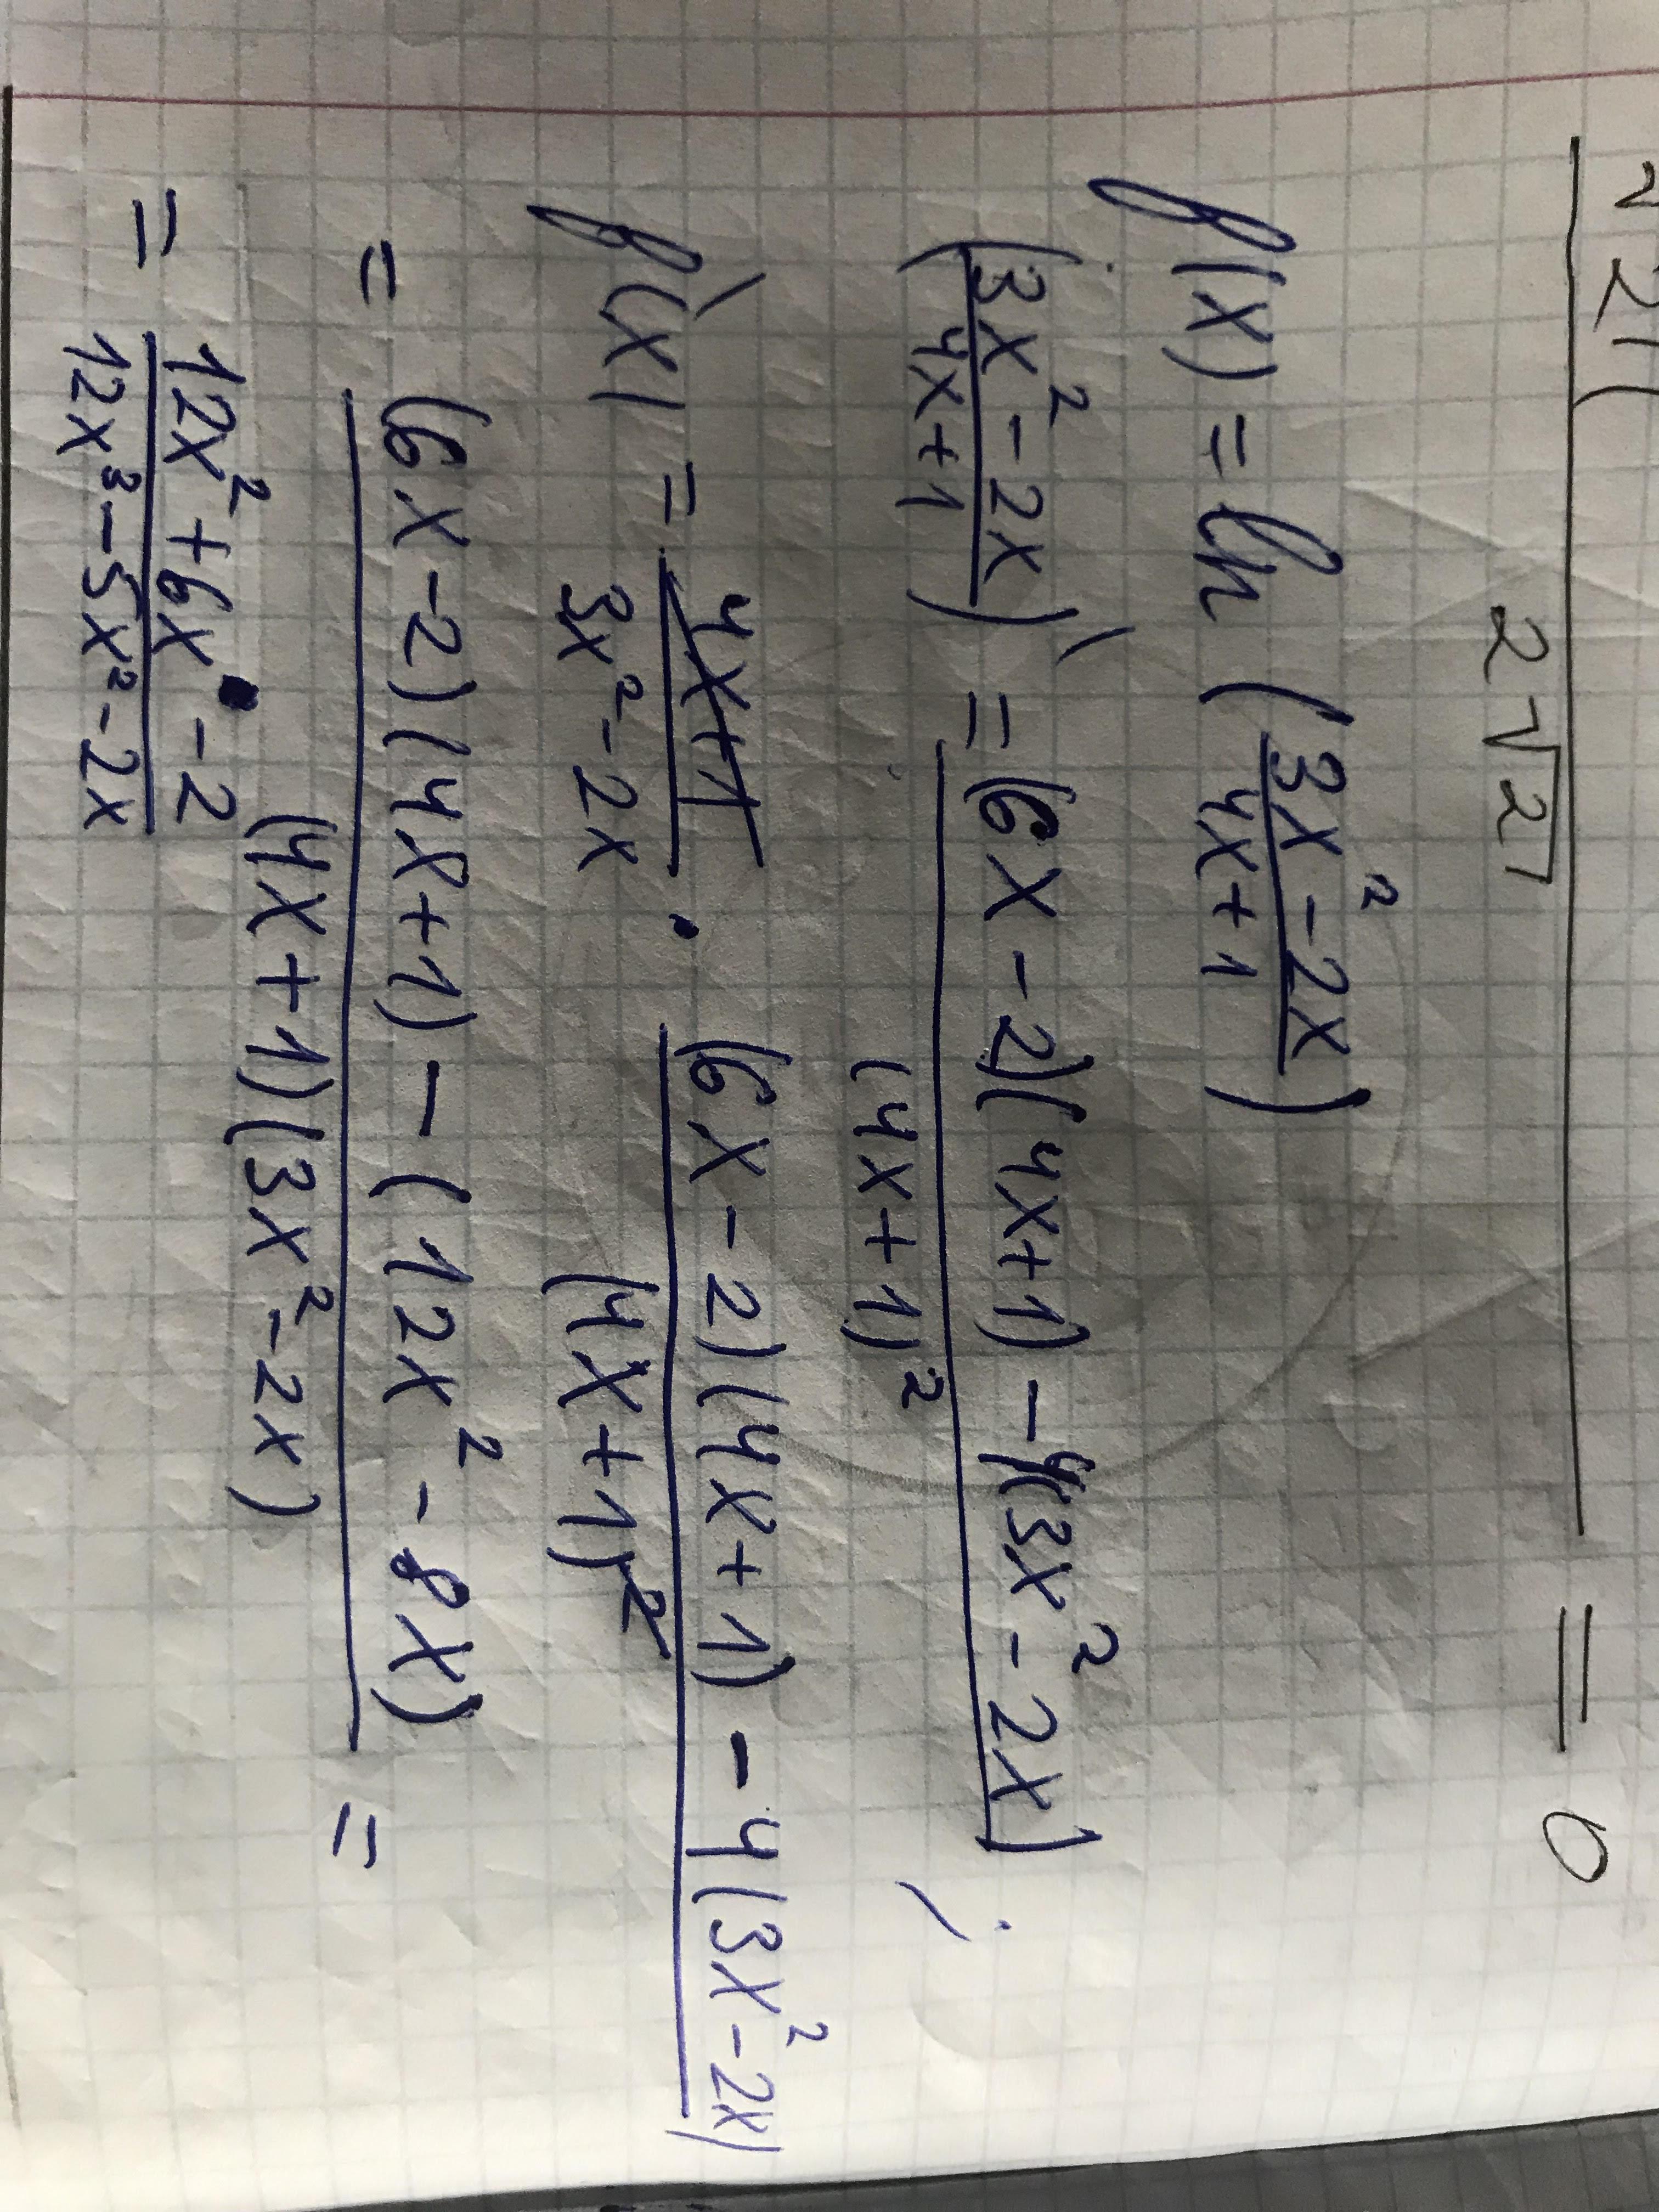 √2(
2√2 = 0
f(x) = ln ( (3x² - 2x)/(4x + 1) )
( (3x² - 2x)/(4x + 1) )' = ((6x - 2)(4x + 1) - 4(3x² - 2x))/(4x + 1)² ;
f'(x) = (4x+1)/(3x² - 2x) · ((6x - 2)(4x + 1) - 4(3x² - 2x))/(4x + 1)²
= ((6x - 2)(4x + 1) - (12x² - 8x))/((4x + 1)(3x² - 2x)) =
= (12x² + 6x - 2)/(12x³ - 5x² - 2x)